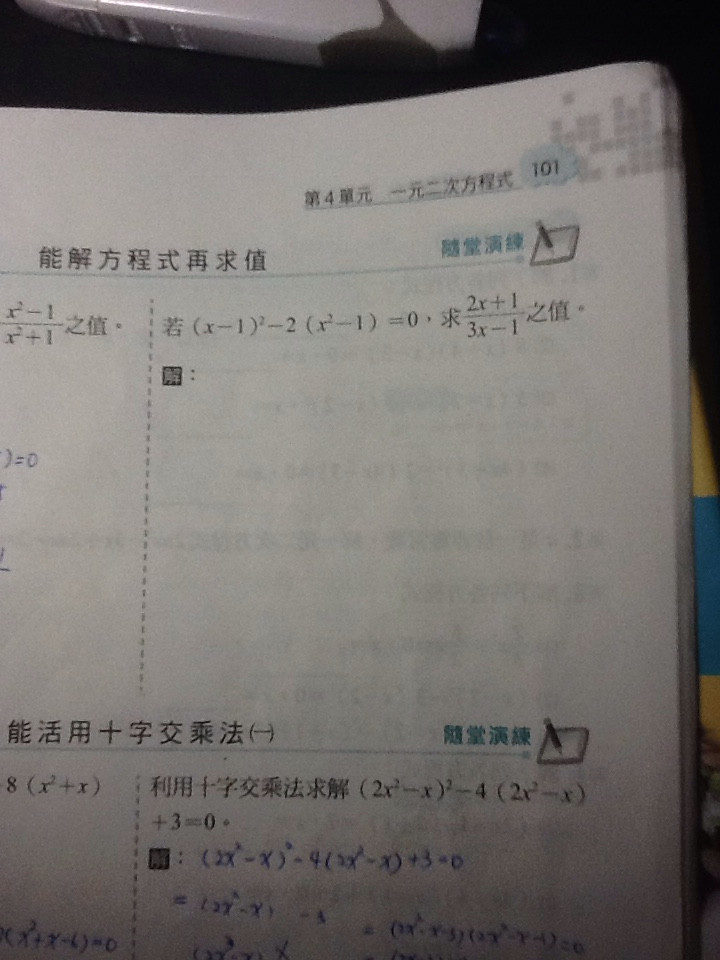 第4單元 一元二次方程式 101
能解方程式再求值 隨堂演練
x²−1/x²+1 之值。
若(x−1)²−2(x²−1)=0,求 2x+1/3x−1 之值。
解:
)=0
能活用十字交乘法(一) 隨堂演練
8(x²+x)
利用十字交乘法求解(2x²−x)²−4(2x²−x)
+3=0。
解: (2x²−x)²−4(2x²−x)+3=0
= (2x²−x) −3
(x²+x−6)=0
(2x²−x) x
= (2x²−x−3)(2x²−x−1)=0